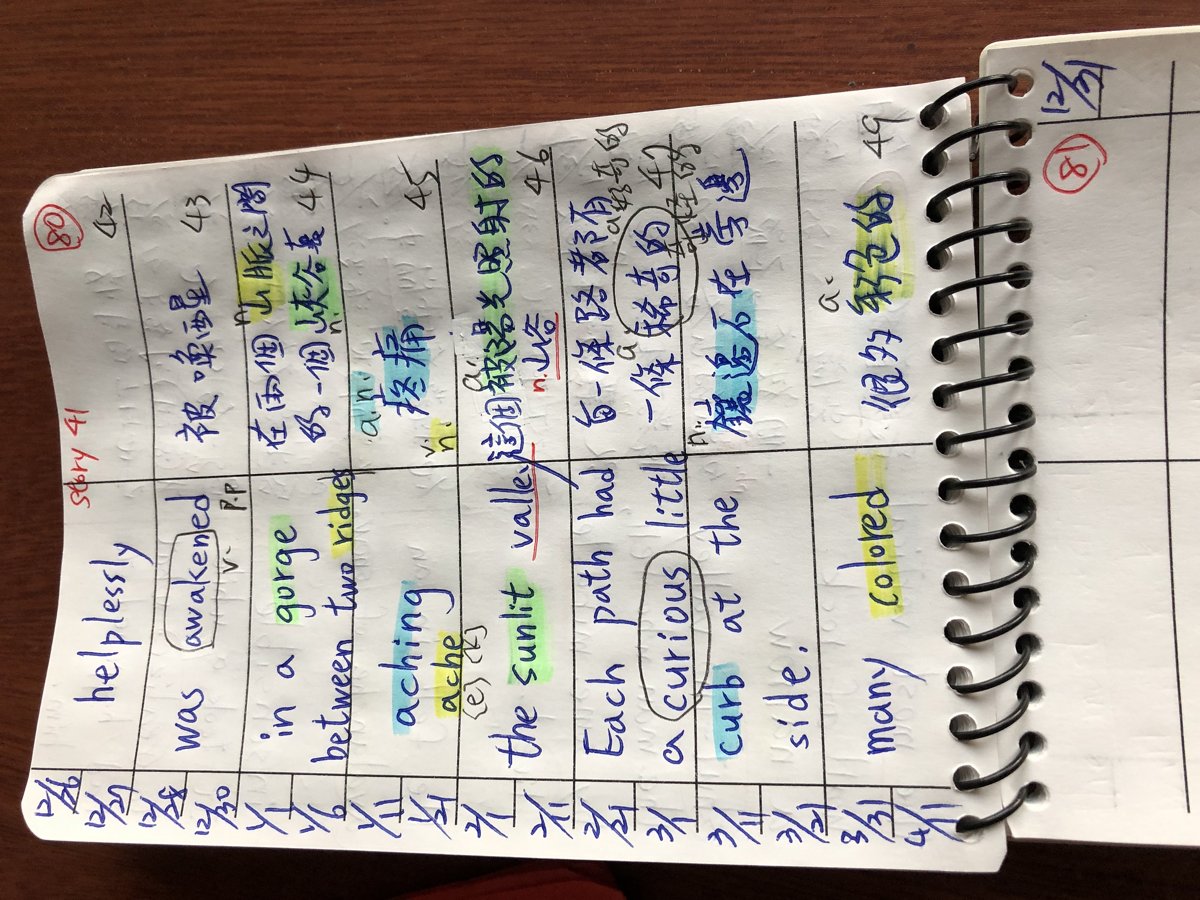 80
story 41
12/26
12/27
helplessly
42
12/28
12/30
was awakened
v. p.p
被喚醒
43
1/1
1/6
in a gorge
between two ridges
n.
在兩個山脈之間
的一個峽谷裏
n.
44
1/11
1/21
aching
ache
{e} {k}
a. n.
疼痛
v. n.
45
2/1
2/11
the sunlit valley
a.
這個被陽光照射的
n. 山谷
46
2/21
3/1
Each path had
a curious little
每一條路都有
a. 好奇的
a.
一條稀奇的
47
奇怪的
3/11
3/21
curb at the
side.
n.
鑲邊石在旁邊
3/31
4/11
many colored
a.
很多彩色的
49
12/31
81